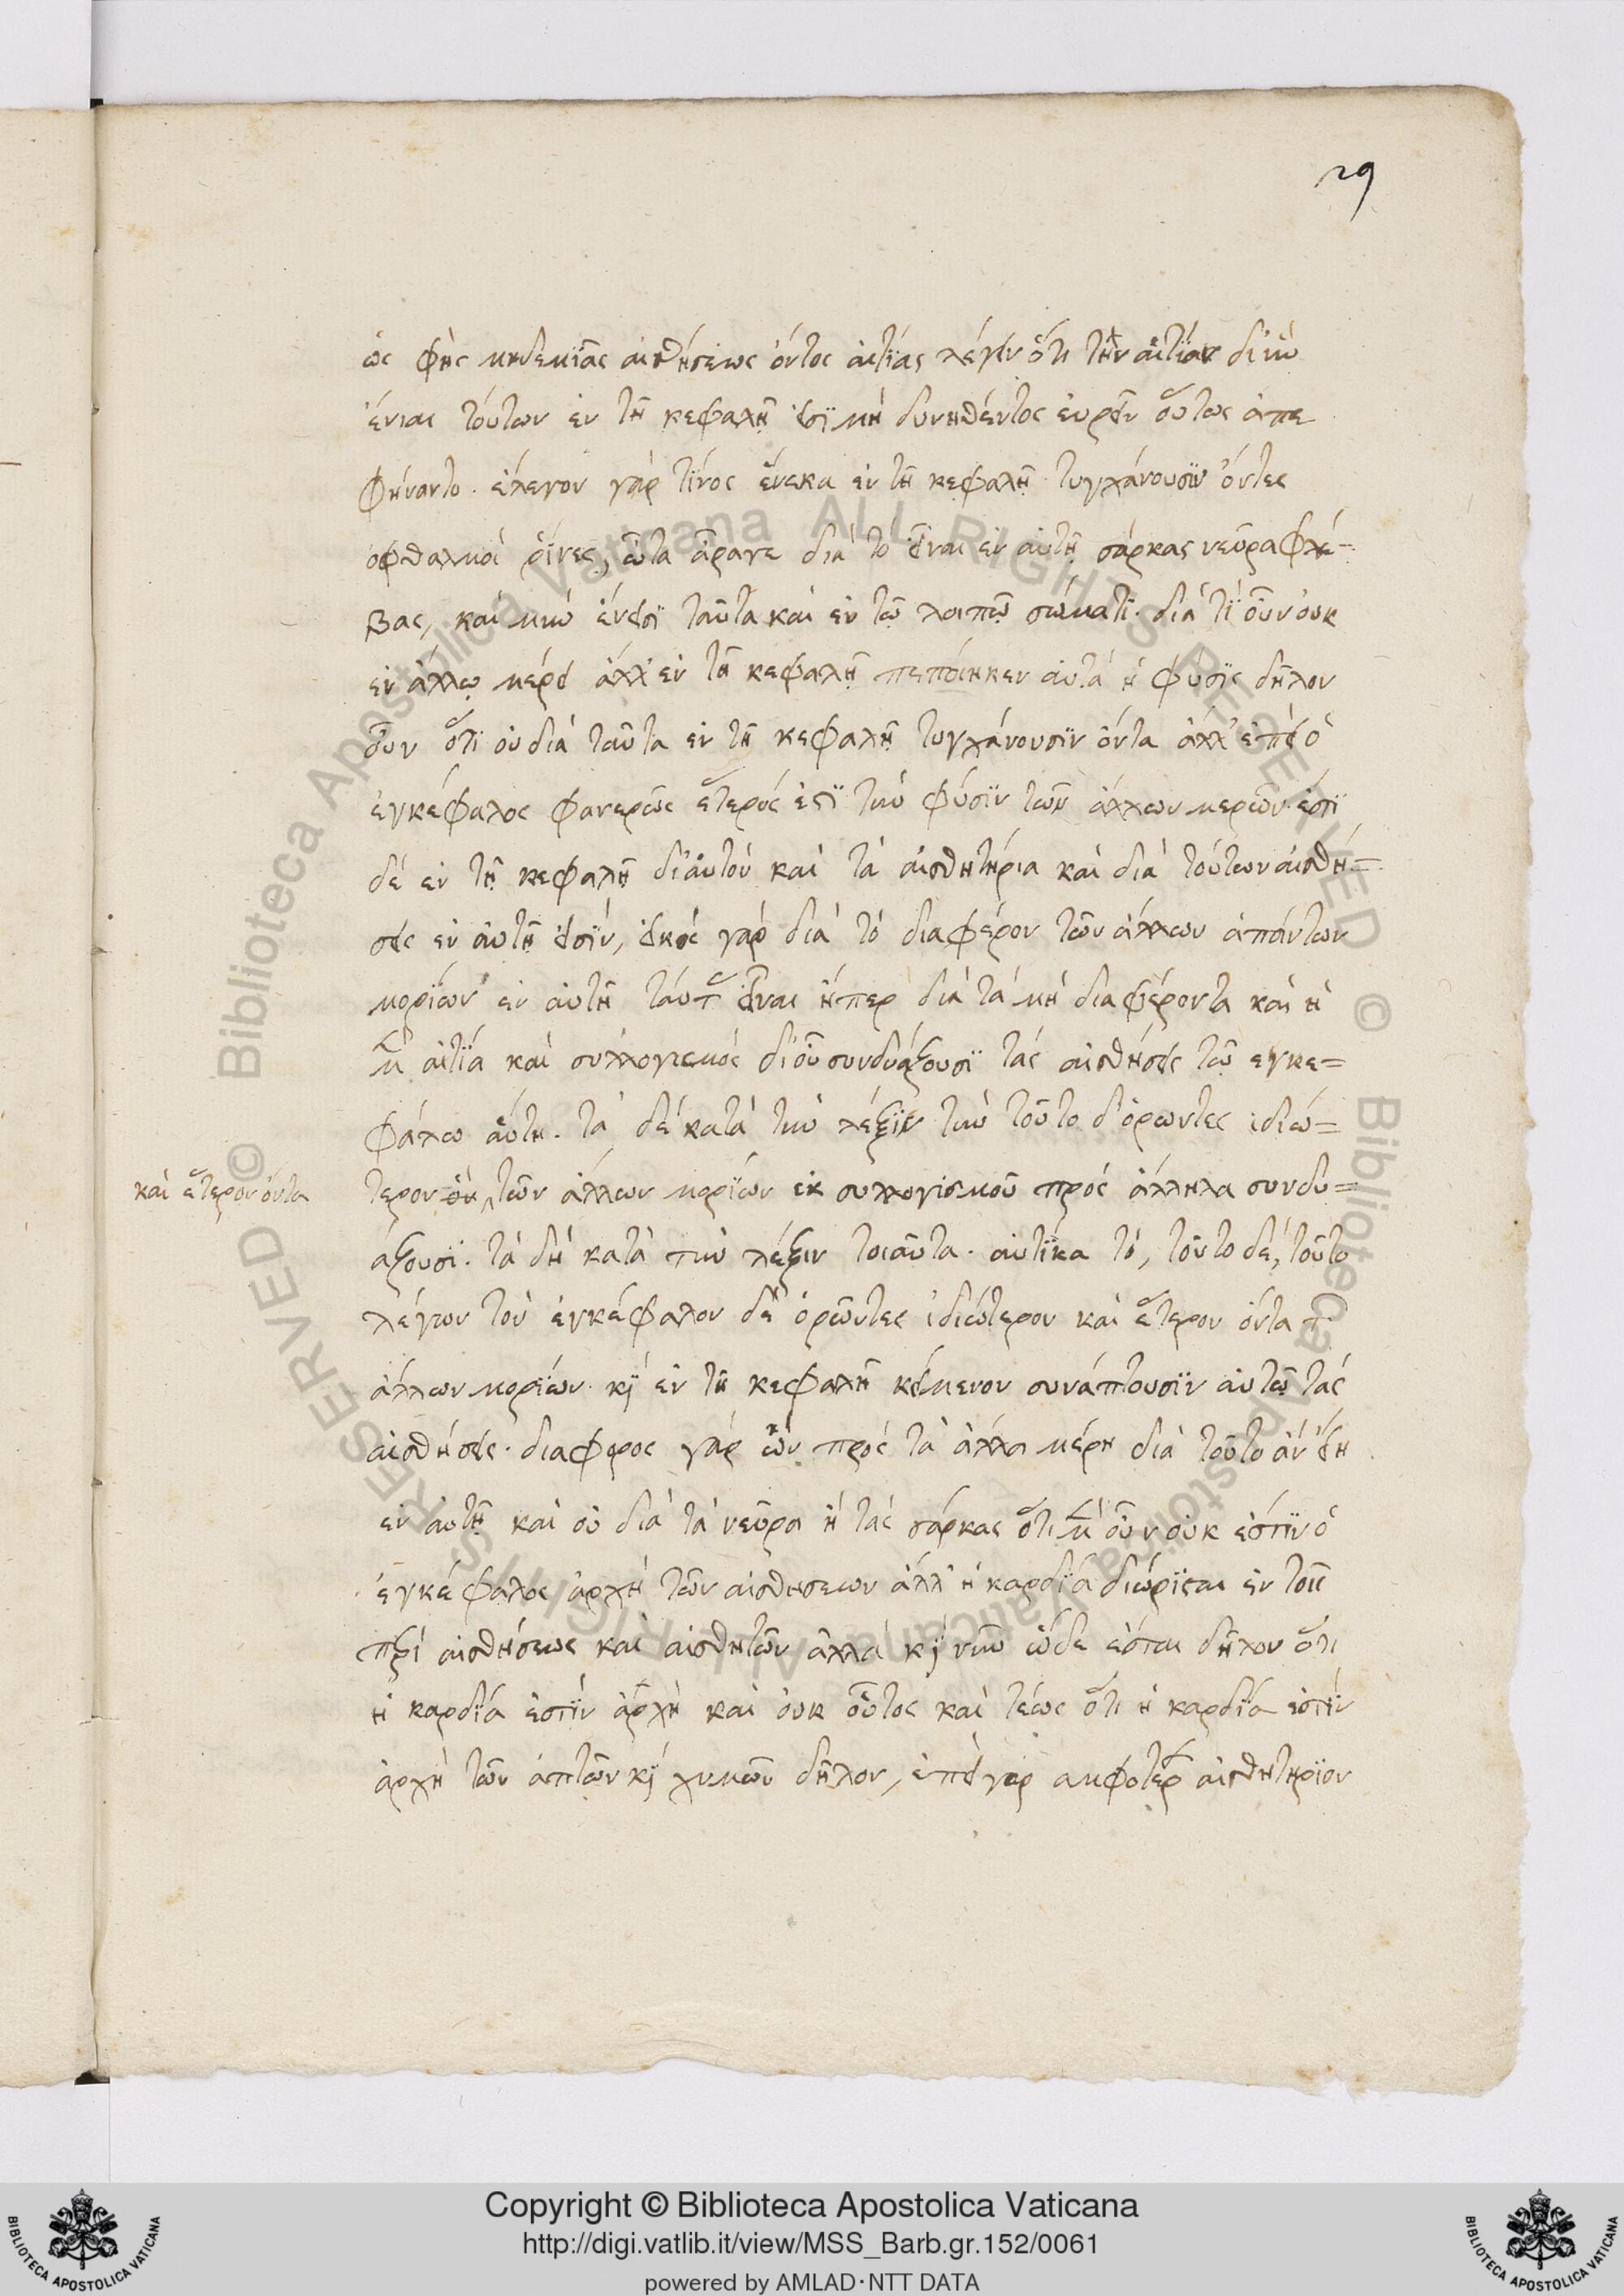 29
ὡς φὴς μηδεμϊᾶς αἰσθήσεως ὄντος αἰτίας λέγειν ὅτι τὴν αἰτίαν δι' ἣν
ἔνιαι τούτων ἐν τῆ κεφαλῆ εἰσῒ μὴ δυνηθέντος εὑρεῖν οὕτως ἀπε
φήναντο. ἔλεγον γὰρ τίνος ἕνεκα ἐν τῆ κεφαλῆ τυγχάνουσϊν ὄντες
ὀφθαλμοὶ ῥῖνες, ὦτα ἆραγε διὰ τὸ εἶναι ἐν αὐτῆ σάρκας νεῦρα φλέ=
βας, καὶ μὴν ἔνεισϊ ταῦτα καὶ ἐν τῶ λοιπῶ σώματϊ. διὰ τί οὖν οὐκ
ἐν ἄλλω μέρει ἀλλ' ἐν τῆ κεφαλῆ πεποίηκεν αὐτὰ ἡ φύσϊς δῆλον
οὖν ὅτϊ οὐ διὰ ταῦτα ἐν τῆ κεφαλῆ τυγχάνουσϊν ὄντα ἀλλ' ἐπεὶ ὁ
ἐγκέφαλος φανερῶς ἕτερός ἐστϊ τὴν φύσϊν τῶν ἄλλων μερῶν. ἐστϊ
δὲ ἐν τῆ κεφαλῆ δι' αὐτὸν καὶ τὰ αἰσθητήρια καὶ διὰ τούτων αἰσθή=
σεις ἐν αὐτῆ εἰσϊν, εἰκὸς γὰρ διὰ τὸ διαφέρον τῶν ἄλλων ἁπάντων
μορίων ἐν αὐτῆ ταύτ εἶναι ἤπερ διὰ τὰ μὴ διαφέροντα καὶ ἡ
μὲν αἰτία καὶ συλλογισμὸς δι' οὗ συνδυάζουσϊ τὰς αἰσθήσεις τῶ ἐγκε=
φάλω αὕτη. τὰ δὲ κατὰ τὴν λέξϊν τὴν τοῦτο δ' ὁρωντες ἰδιώ=
τερον τῶν ἄλλων μορίων ἐκ συλλογισμοῦ πρὸς ἄλληλα συνδυ=
καὶ ἕτερον ὄντα
άζουσϊ. τὰ δὴ κατὰ τὴν λέξιν τοιαῦτα. αὐτίκα τὸ, τοῦτο δὲ, τοῦτο
λέγων τὸν ἐγκέφαλον δὲ ὁρῶντες ἰδιώτερον καὶ ἕτερον ὄντα τ
ἄλλων μορίων. κὶ ἐν τῆ κεφαλῆ κείμενον συνάπτουσϊν αὐτῶ τὰς
αἰσθήσεις. διαφερος γὰρ ὢν πρὸς τὰ ἄλλα μέρη διὰ τοῦτο ἂν εἴη
ἐν αὐτῆ καὶ οὐ διὰ τὰ νεῦρα ἢ τὰς σάρκας ὅτι μὲν οὖν οὐκ ἔστϊν ὁ
ἐγκέφαλος ἀρχὴ τῶν αἰσθησεων ἀλλ' ἡ καρδία διώρϊσται ἐν τοῖς
περὶ αἰσθήσεως καὶ αἰσθητῶν ἀλλὰ κὶ νῦν ὧδε ἔσται δῆλον ὅτι
ἡ καρδία ἐστϊν ἀρχὴ καὶ οὐκ οὗτος καὶ τέως ὅτι ἡ καρδία ἐστϊν
ἀρχὴ τῶν ἁπτῶν κὶ χυμῶν δῆλον, ἐπεὶ γὰρ ἀμφοτέρ αἰσθητηρϊον
Copyright © Biblioteca Apostolica Vaticana
http://digi.vatlib.it/view/MSS_Barb.gr.152/0061
powered by AMLAD·NTT DATA